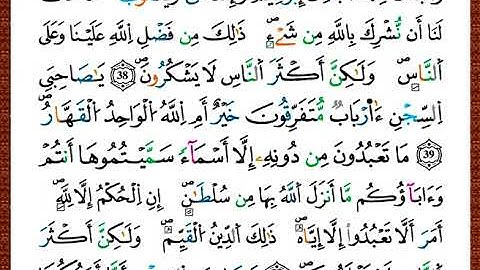 لَنَا أَن نُّشْرِكَ بِاللَّهِ مِن شَىْءٍ ذَٰلِكَ مِن فَضْلِ اللَّهِ عَلَيْنَا وَعَلَى
النَّاسِ وَلَٰكِنَّ أَكْثَرَ النَّاسِ لَا يَشْكُرُونَ 38 يَٰصَاحِبَىِ
السِّجْنِ ءَأَرْبَابٌ مُّتَفَرِّقُونَ خَيْرٌ أَمِ اللَّهُ الْوَاحِدُ الْقَهَّارُ
39 مَا تَعْبُدُونَ مِن دُونِهِ إِلَّا أَسْمَآءً سَمَّيْتُمُوهَا أَنتُمْ
وَءَابَآؤُكُم مَّا أَنزَلَ اللَّهُ بِهَا مِن سُلْطَٰنٍ إِنِ الْحُكْمُ إِلَّا لِلَّهِ
أَمَرَ أَلَّا تَعْبُدُوا إِلَّا إِيَّاهُ ذَٰلِكَ الدِّينُ الْقَيِّمُ وَلَٰكِنَّ أَكْثَرَ